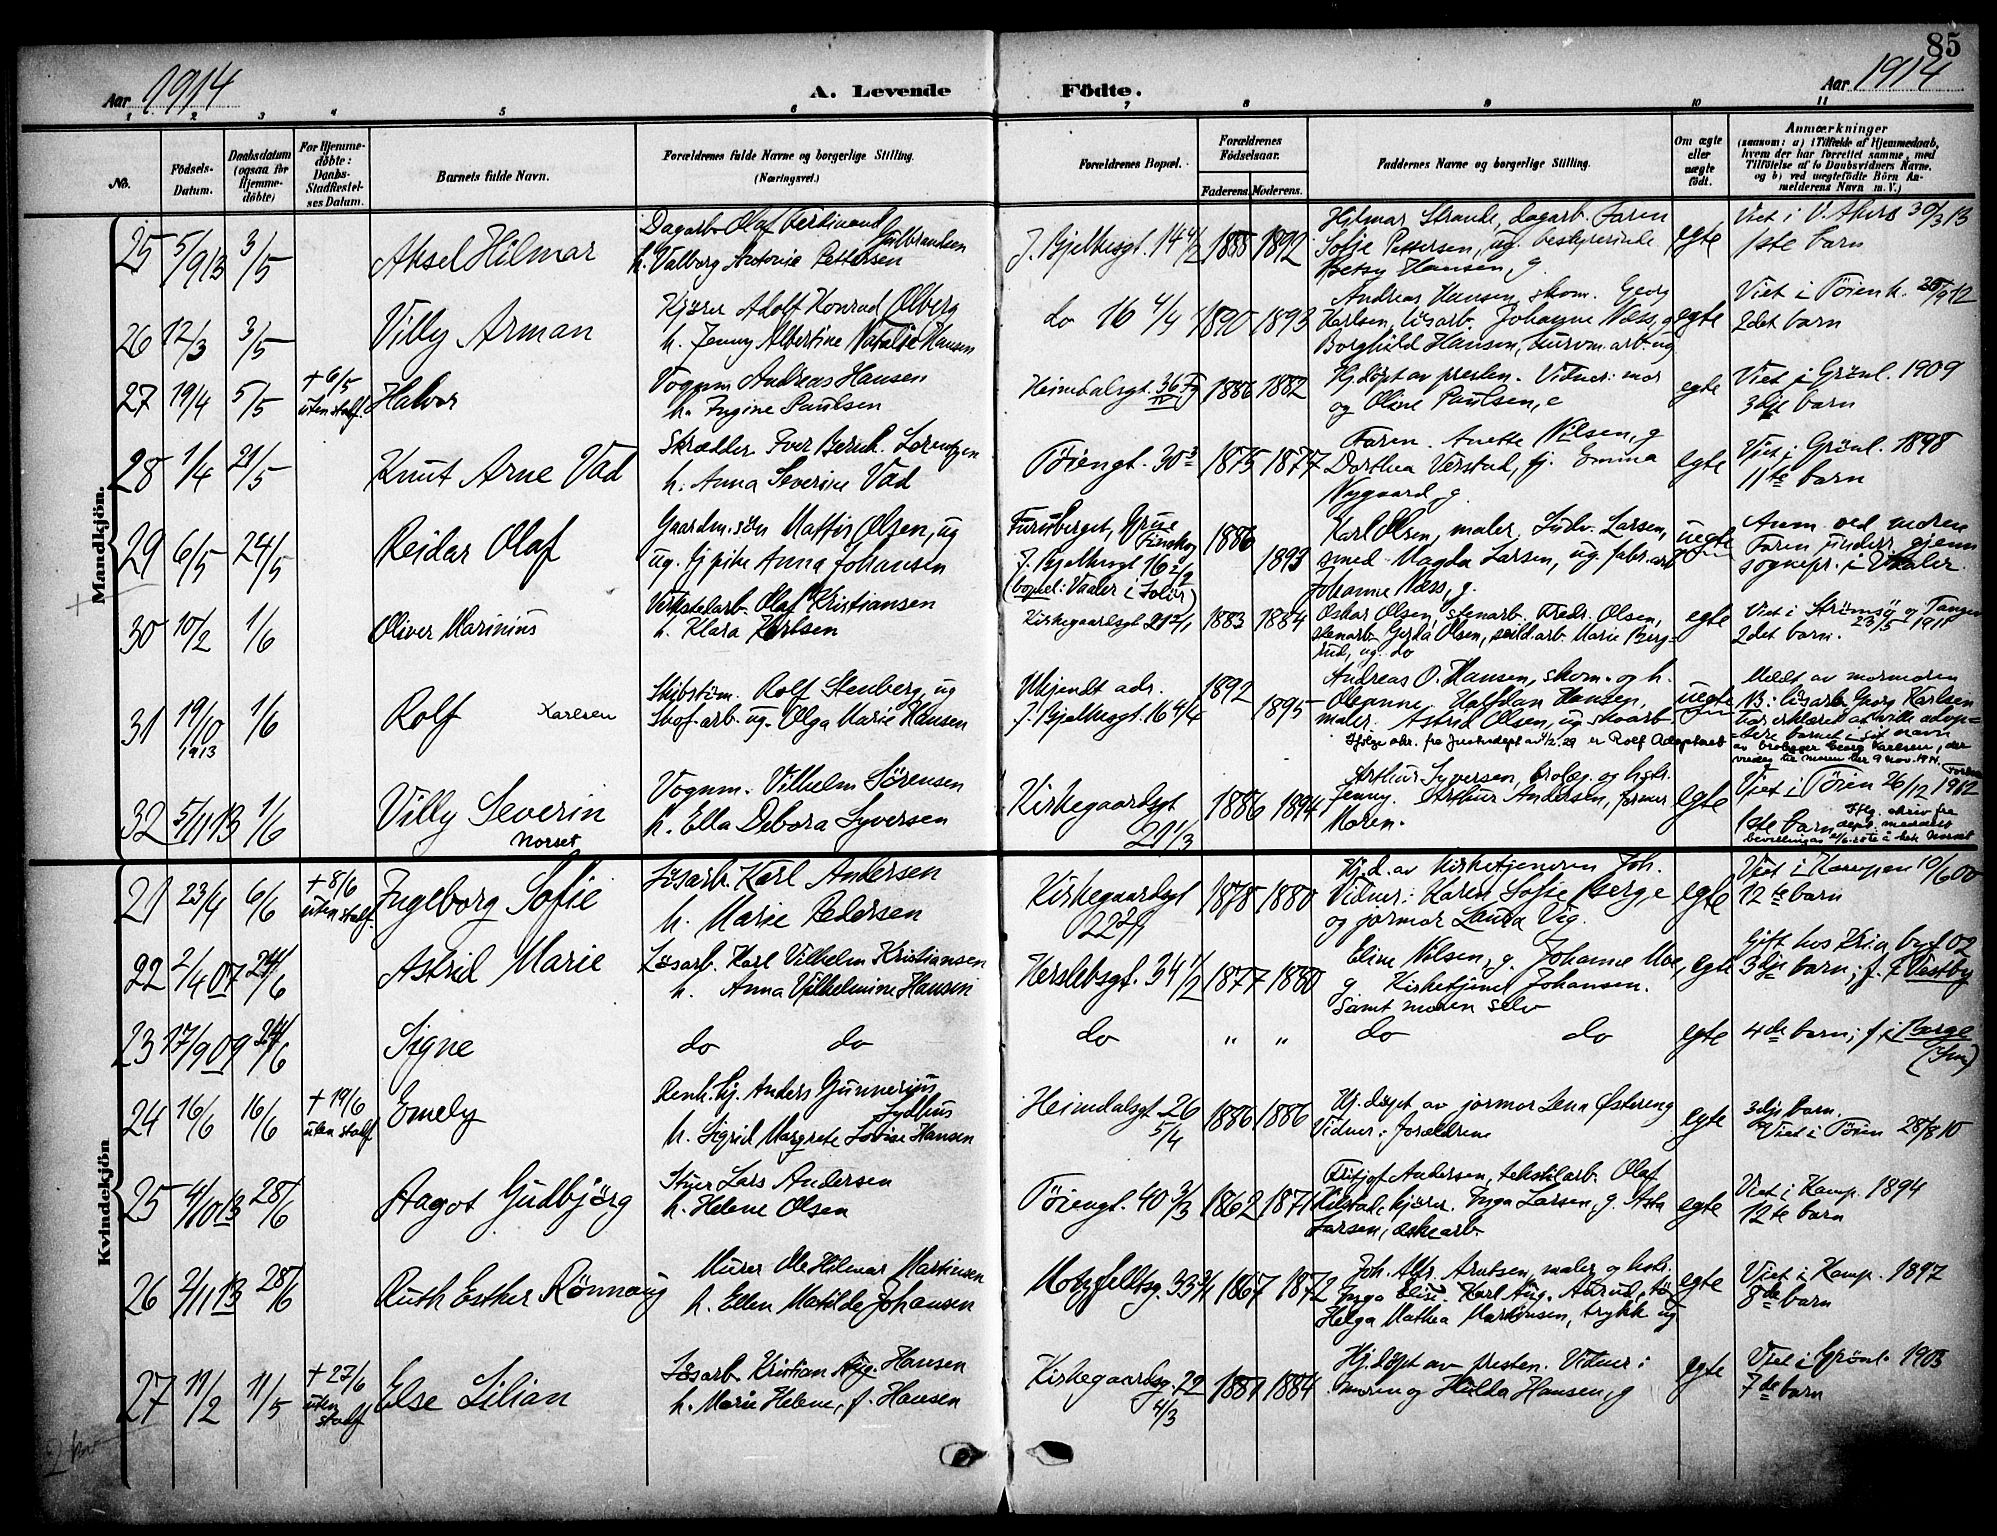 85
Aar 1914
A. Levende
Födte.
Aar 1914
1 2 3 4 5 6 7 8 9 10 11
No.
Födsels-
Datum.
Daabsdatum
(ogsaa for
Hjemme-
döbte)
For Hjemme-
döbte:
Daabs-
Stadfæstel-
ses Datum.
Barnets fulde Navn.
Forældrenes fulde Navne og borgerlige Stilling.
(Næringsvei.)
Forældrenes Bopæl.
Forældrenes
Födselsaar.
Faderens. Moderens.
Faddernes Navne og borgerlige Stilling.
Om ægte
eller
uægte
födt.
Anmærkninger
(saasom: a) i Tilfælde af Hjemmedaab,
hvem der har forrettet samme, med
Tilföielse af to Daabsvidners Navne,
og b) ved uægtefödte Börn An-
melderens Navn m. V.)
Mandkjön.
25 5/9 13 3/5 Aksel Hilmar
Dagarb. Olaf Ferdinand Gulbrandsen
h. Valborg Antonie Pettersen
J. Bjelkesgt. 14 4/2 1888 1892
Hjelmar Strande, dagarb. Faren
Sofie Pettersen, ug. bestyrerinde
Betsy Hansen, g.
egte
Viet i V. Akers 30/3 13
1ste barn
26 12/3 3/5 Villy Arman
Kjører Adolf Konrad Olberg
h. Jenny Albertine Natalie Hansen
do 16 4/4 1890 1893
Andreas Hansen, skom. Georg
Karlsen, løsarb. Johanne Næss, g
Borghild Hansen, arb. ug
egte
Viet i Töien k. 12
2det barn
27 19/4 5/5 + 6/5 uten stadf. Halvor
Vognm. Andreas Hansen
h. Ingine Paulsen
Heimdalsgt. 36 1886 1882
Hj.döpt av presten. Vidner: mor
og Oline Paulsen, e
egte
Viet i Grönl. 1909
3dje barn
28 1/4 21/5 Knut Arne Vad
Skrædder Iver Bernh. Lorentzen
h. Anna Severine Vad
Töiengt. 30 3 1875 1877
Faren. Anette Nilsen, g
Dorthea Verstad, tj. Emma
Nygaard, g.
egte
Viet i Grönl. 1898
11te barn
29 6/5 24/5 Reidar Olaf
Gaardm.sön Olsen, ug
ug. tj.pike Anna Johansen
Furuberget, Grue Finskog
J. Bjelkesgt 16 2/2
(bopæl: Vaaler i Solör)
1886 1893
Karl Olsen, maler, Ludv. Larsen,
smed. Magda Larsen, ug. fabr.arb
Johanne Næss, g.
uegte
Anm. ved moren
Faren underr. gjenn
sognepr. i Vaaler.
30 10/2 1/6 Oliver Marinius
Verkstedarb. Olaf Kristiansen
h. Klara Karlsen
Kirkegaardsgt 21 2/1 1883 1884
Oskar Olsen, stenarb. Fredr. Olsen,
stenarb. Gerda Olsen, arb. Marie Berg-
rud, ug. do
egte
Viet i Strömsö og Tangen
23/5 1911
2det barn.
31 19/10 1913 1/6 Rolf Karlsen
Skibstöm. Rolf Stenberg, ug
Skof.arb. ug. Olga Marie Hansen
Ukjendt adr.
J. Bjelkesgt. 16 4/4
1892 1895
Andreas O. Hansen, skom. og h.
Oleanne, Halfdan Hansen,
maler. Astrid Olsen, ug. skoarb.
Ifölge skr. fra Justisdept av 4/2.29 er Rolf Adoptert
uegte
Meldt av mormoren
NB: lösarb. Georg Karlsen
har erklæret at ville adop-
tere barnet i sit navn
av brolegger Georg Karlsen, der
viedes til moren den 9 nov. 1914.
32 5/11 13 1/6 Villy Severin Norset
Vognm. Vilhelm Sörensen
h. Ella Debora Syversen
Kirkegaardsgt
21 1/3
1886 1894
Arthur Syversen, brolæg. og hstr.
Jenny. Arthur Andersen, former
Moren.
egte
Viet i Töien 26/12 1912
1ste barn
Kvindekjön
21 23/4 6/6 + 8/6 uten stadf. Ingeborg Sofie
Lösarb. Karl Andersen
h. Marie Pedersen
Kirkegaardsgt
22 2/1
1878 1880
Hj.d. av kirketjeneren Joh.
Vidner: Karen Sofie Berg, e
og jormor Laura Vig.
egte
Viet i Kampen 10/6 00
12te barn
22 2/4 07 24/6 Astrid Marie
Lösarb. Karl Vilhelm Kristiansen
h. Anna Vilhelmine Hansen
Herslebsgt. 34 1/2 1877 1880
Eline Nilsen, g. Johanne Moe,
g Kirketjener Johansen.
samt moren selv
egte
Gift hos Kria byf. 02
3dje barn; f. i Vestby
23 17/9 09 24/6 Signe
do do
do " " do do
egte
4de barn; f. i Borge
24 16/6 16/6 + 19/6 uten stadf. Emely
Renh.bj. Anders Gunnerius Sydhus
h. Sigrid Margrete Lovise Hansen
Heimdalsgt. 26
5/4
1886 1886
Hj.döpt av jormor Lena Østereng
Vidner: forældrene
egte
3dje barn.
Viet i Töien 28/8 10
25 4/10 13 28/6 Aagot Gudbjörg
Stuer Lars Andersen
h. Helene Olsen
Töiengt. 40 3/3 1862 1871
Fritjof Andersen, tekstilarb. Olaf
Kilstad, kjörer. Inga Larsen, g. Asta
Larsen, æskearb.
egte
Viet i Kamp. 1894
12te barn
26 2/11 13 28/6 Ruth Esther Rönnaug
Murer Ole Hilmar Martinsen
h. Ellen Matilde Johansen
Motzfeldtsg. 33 3/1 1867 1872
Joh. Alfr. Arntsen, maler og hstr.
Inga Elise. Karl Aug. Aarud,
Helga Mathea Martinsen, trykk. ug
egte
Viet i Kamp. 1897
8de barn
27 11/2 11/5 + 23/6 uten stadf Else Lilian
Lösarb. Kristian Aug. Hansen
h. Marie Helene, f. Hansen
Kirkegaardsg. 22
4/3
1881 1884
Hj.döpt av presten. Vidner:
moren og Hulda Hansen, g
egte
Viet i Grönl. 1903
7de barn